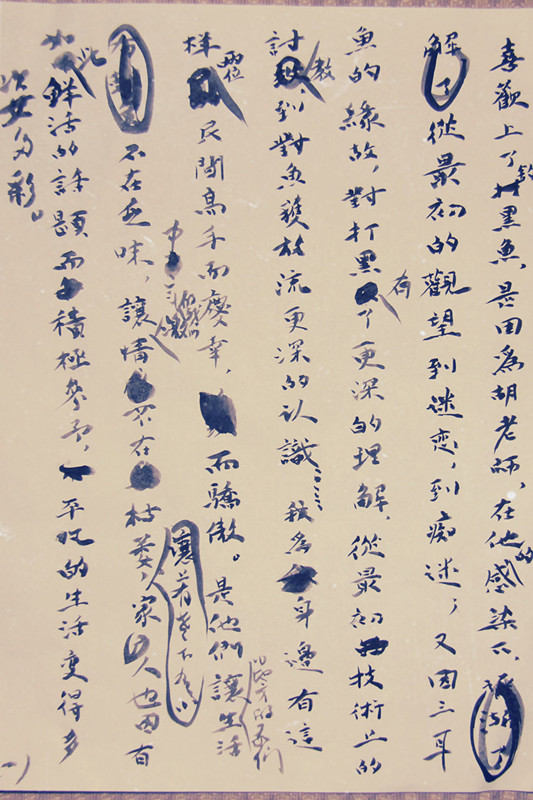 喜歡上了釣黑魚，是因爲胡老師，在他的感染下，
從最初的觀望到迷恋，到痴迷，又因三耳
魚的緣故，對打黑有了更深的理解，從最初技術上的
討教，到對魚獲放流更深的认識……我爲身邊有這
樣兩位民間高手而慶幸，而驕傲。是他們讓生活
不在乏味，讓情不在枯萎，家人也因有
如此鲜活的話題而積極參予，平淡的生活變得多
姿多彩。